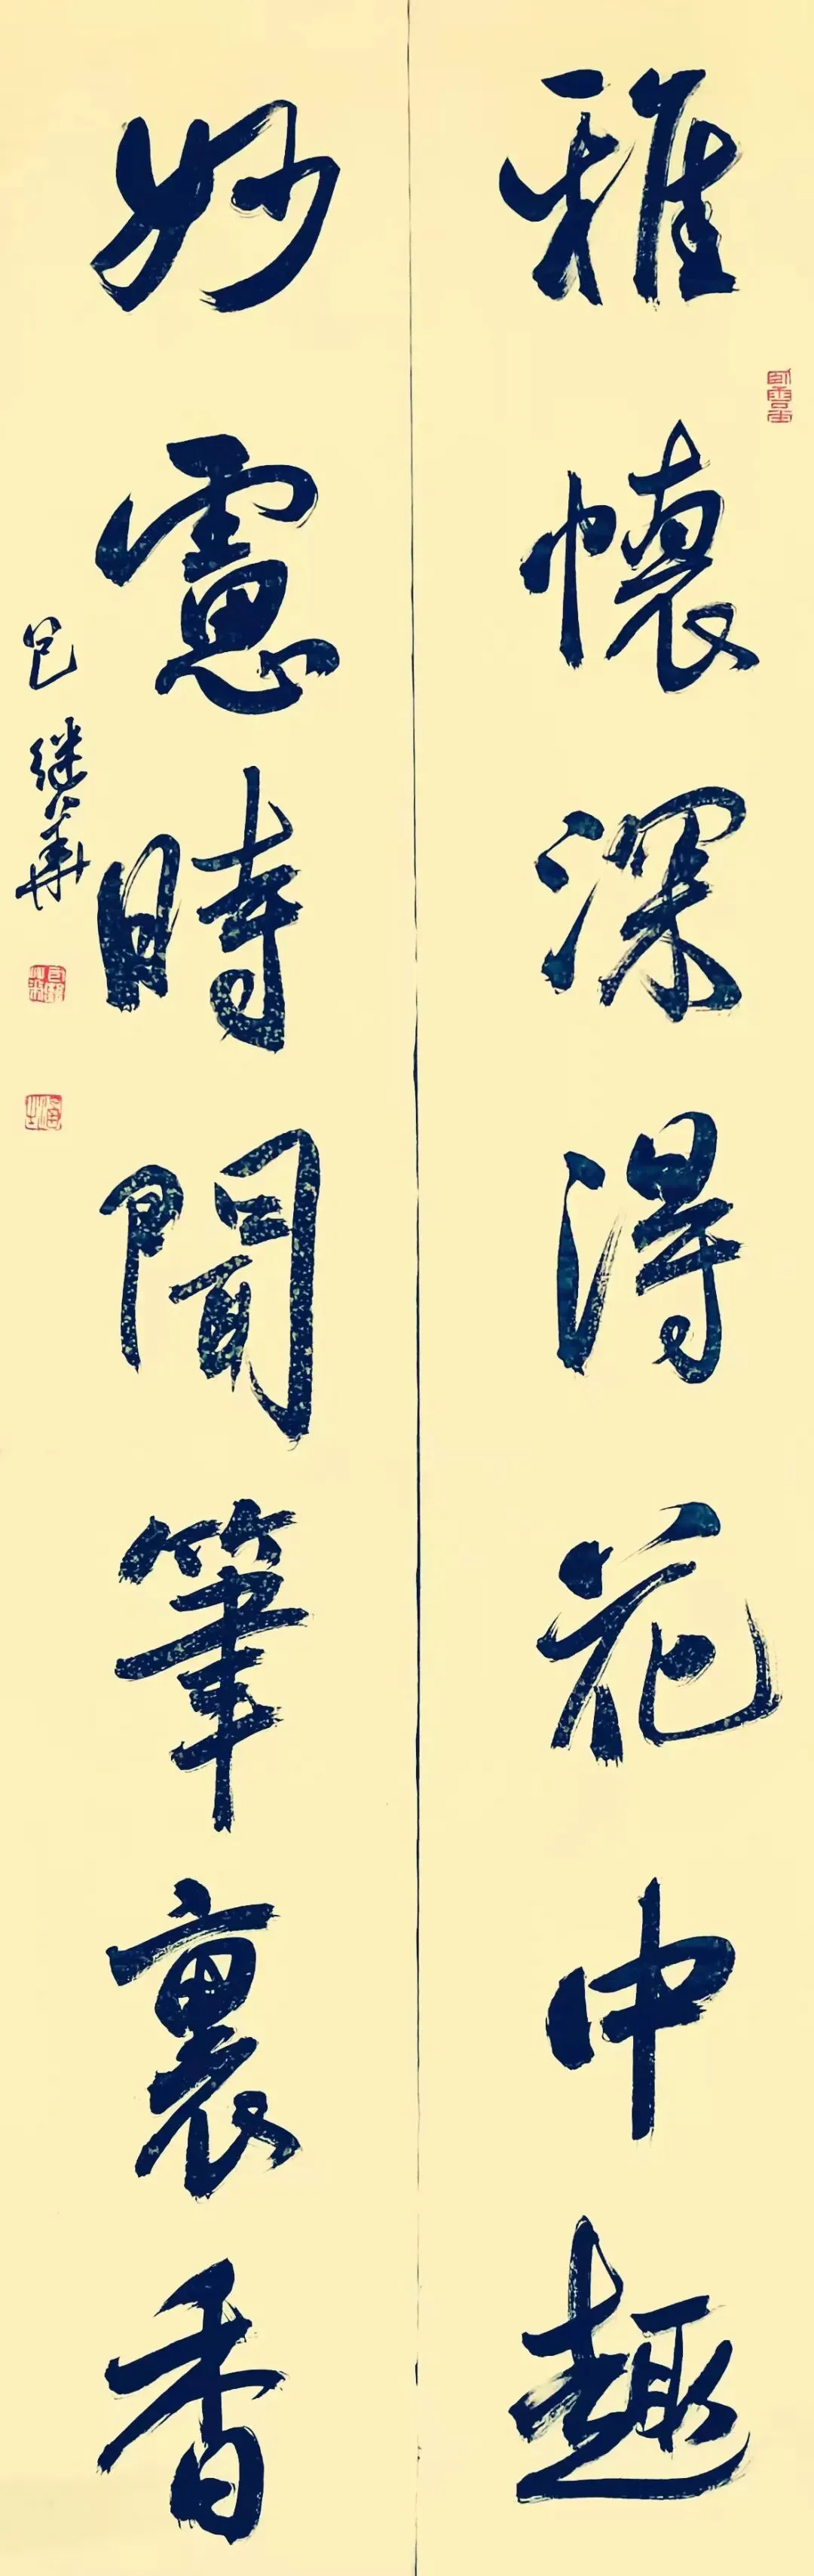 雅懷深得花中趣
妙慮時聞筆裏香
包继華